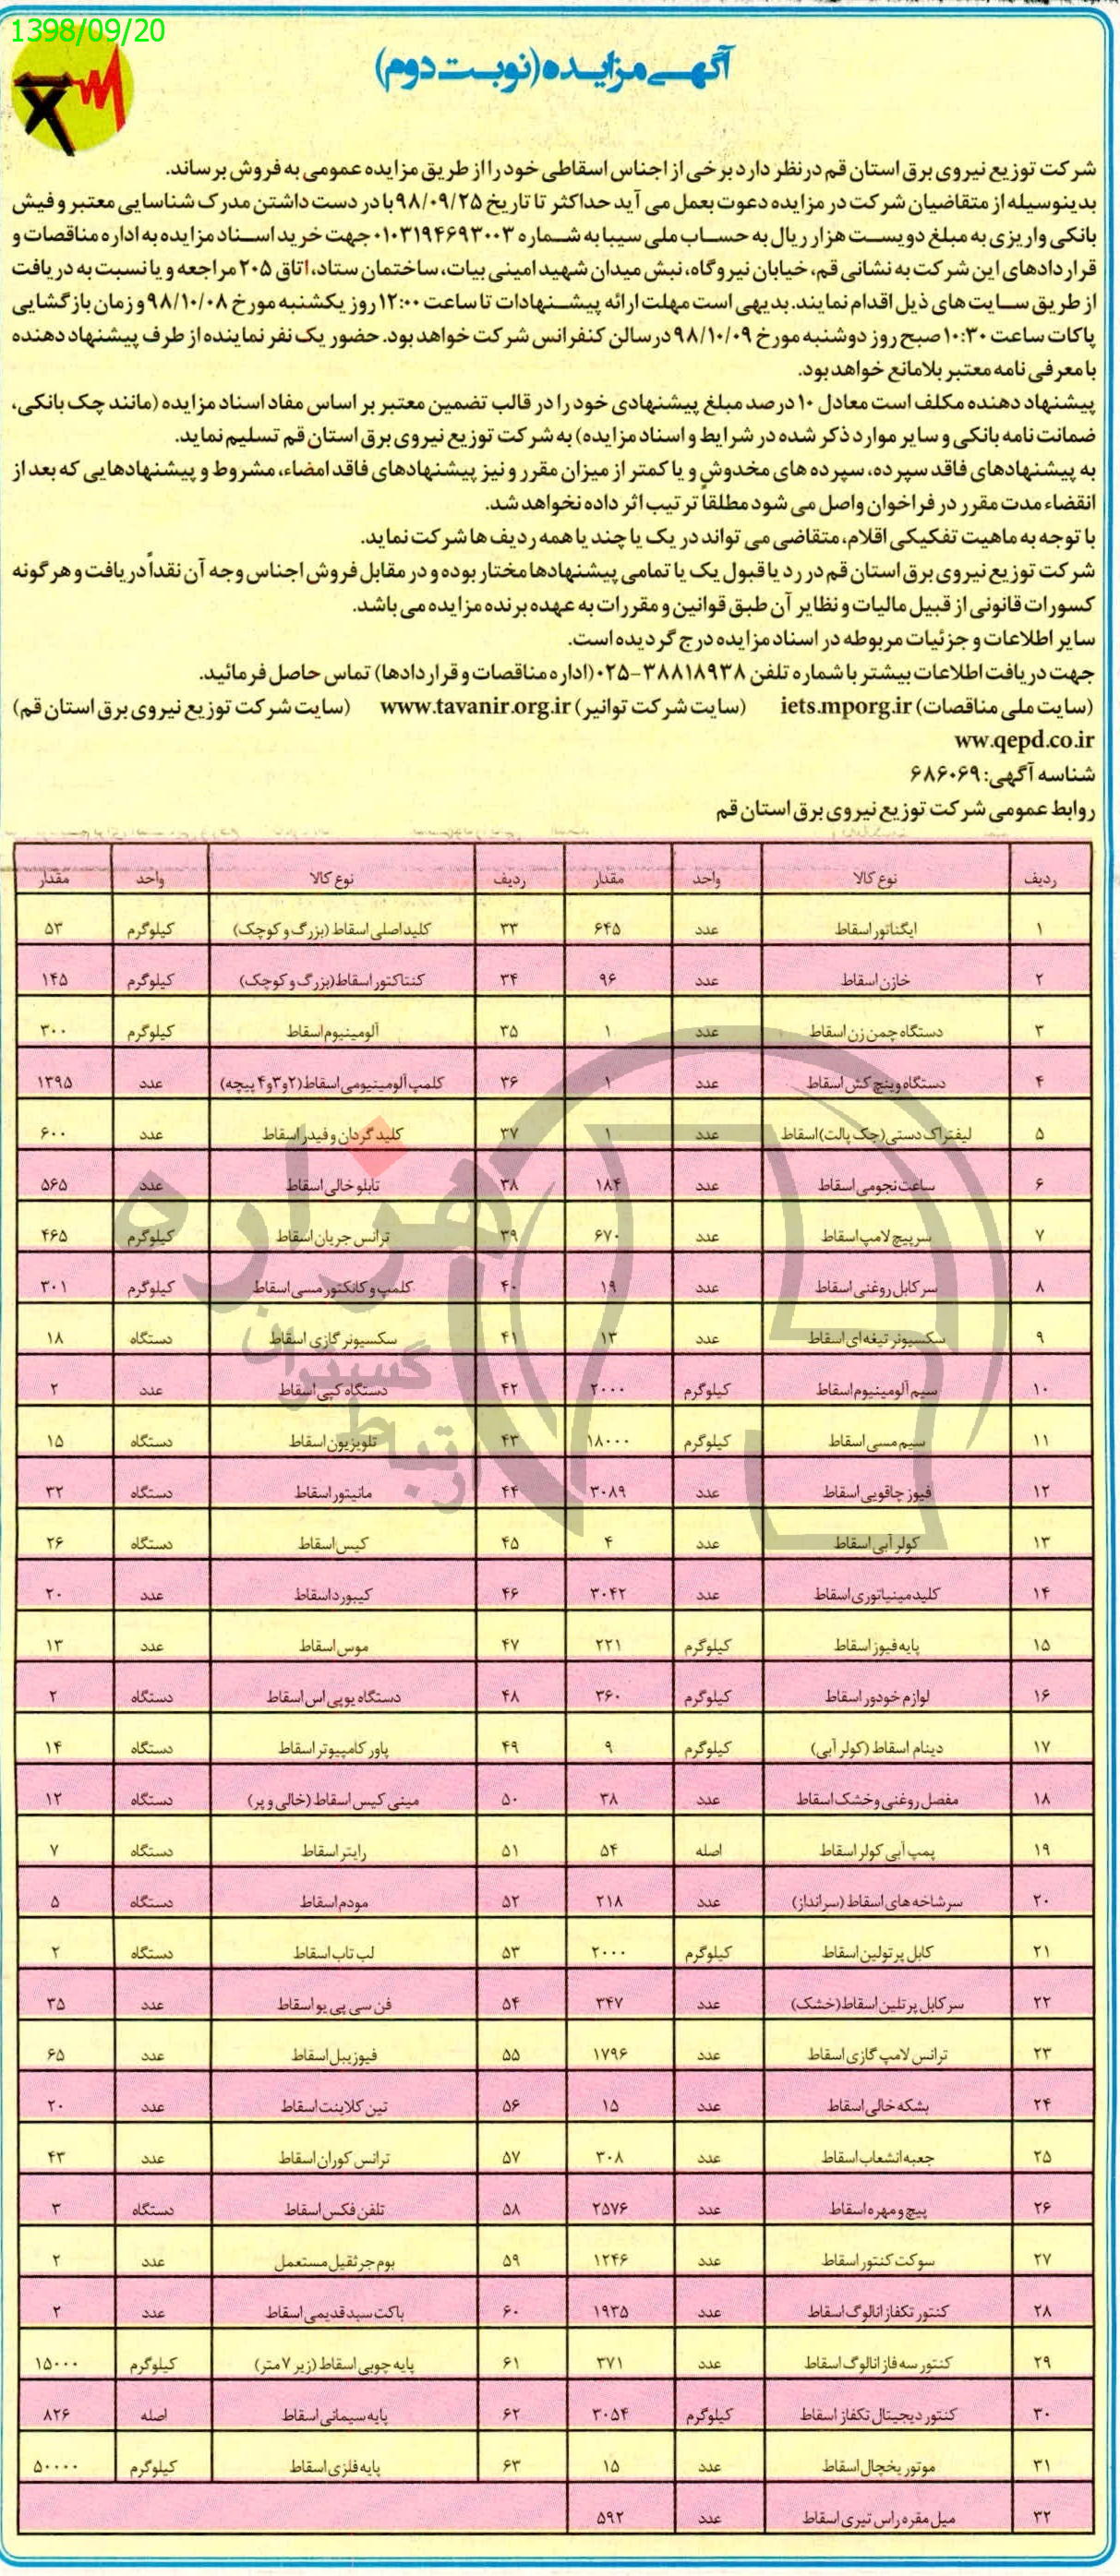 1398/09/20
آگهی مزایده (نوبت دوم)
شرکت توزیع نیروی برق استان قم در نظر دارد برخی از اجناس اسقاطی خود را از طریق مزایده عمومی به فروش برساند.
بدینوسیله از متقاضیان شرکت در مزایده دعوت بعمل می آید حداکثر تا تاریخ ۹۸/۰۹/۲۵ با در دست داشتن مدرک شناسایی معتبر و فیش
بانکی واریزی به مبلغ دویست هزار ریال به حساب ملی سیبا به شماره ۰۱۰۳۱۹۴۶۹۳۰۰۳ جهت خرید اسناد مزایده به اداره مناقصات و
قراردادهای این شرکت به نشانی قم، خیابان نیروگاه، نبش میدان شهید امینی بیات، ساختمان ستاد، اتاق ۲۰۵ مراجعه و یا نسبت به دریافت
از طریق سایت های ذیل اقدام نمایند. بدیهی است مهلت ارائه پیشنهادات تا ساعت ۱۲:۰۰ روز یکشنبه مورخ ۹۸/۱۰/۰۸ و زمان بازگشایی
پاکات ساعت ۱۰:۳۰ صبح روز دوشنبه مورخ ۹۸/۱۰/۰۹ در سالن کنفرانس شرکت خواهد بود. حضور یک نفر نماینده از طرف پیشنهاد دهنده
با معرفی نامه معتبر بلامانع خواهد بود.
پیشنهاد دهنده مکلف است معادل ۱۰ درصد مبلغ پیشنهادی خود را در قالب تضمین معتبر بر اساس مفاد اسناد مزایده (مانند چک بانکی،
ضمانت نامه بانکی و سایر موارد ذکر شده در شرایط و اسناد مزایده) به شرکت توزیع نیروی برق استان قم تسلیم نماید.
به پیشنهادهای فاقد سپرده، سپرده های مخدوش و یا کمتر از میزان مقرر و نیز پیشنهادهای فاقد امضاء، مشروط و پیشنهادهایی که بعد از
انقضاء مدت مقرر در فراخوان واصل می شود مطلقاً ترتیب اثر داده نخواهد شد.
با توجه به ماهیت تفکیکی اقلام، متقاضی می تواند در یک یا چند یا همه ردیف ها شرکت نماید.
شرکت توزیع نیروی برق استان قم در رد یا قبول یک یا تمامی پیشنهادها مختار بوده و در مقابل فروش اجناس وجه آن نقداً دریافت و هر گونه
کسورات قانونی از قبیل مالیات و نظایر آن طبق قوانین و مقررات به عهده برنده مزایده می باشد.
سایر اطلاعات و جزئیات مربوطه در اسناد مزایده درج گردیده است.
جهت دریافت اطلاعات بیشتر با شماره تلفن ۳۸۸۱۸۹۳۸-۰۲۵ (اداره مناقصات و قراردادها) تماس حاصل فرمائید.
(سایت ملی مناقصات) iets.mporg.ir (سایت شرکت توانیر) www.tavanir.org.ir (سایت شرکت توزیع نیروی برق استان قم)
ww.qepd.co.ir
شناسه آگهی: ۶۸۶۰۶۹
روابط عمومی شرکت توزیع نیروی برق استان قم
ردیف نوع کالا واحد مقدار ردیف نوع کالا واحد مقدار
۱ ایگناتور اسقاط عدد ۶۴۵ ۳۳ کلید اصلی اسقاط (بزرگ و کوچک) کیلوگرم ۵۳
۲ خازن اسقاط عدد ۹۶ ۳۴ کنتاکتور اسقاط (بزرگ و کوچک) کیلوگرم ۱۴۵
۳ دستگاه چمن زن اسقاط عدد ۱ ۳۵ آلومینیوم اسقاط کیلوگرم ۳۰۰
۴ دستگاه وینچ کش اسقاط عدد ۱ ۳۶ کلمپ آلومینیومی اسقاط (۲و۳و۴ پیچه) عدد ۱۳۹۵
۵ لیفتراک دستی (جک پالت) اسقاط عدد ۱ ۳۷ کلید گردان و فیدر اسقاط عدد ۶۰۰
۶ ساعت نجومی اسقاط عدد ۱۸۴ ۳۸ تابلو خالی اسقاط عدد ۵۶۵
۷ سرپیچ لامپ اسقاط عدد ۶۷۰ ۳۹ ترانس جریان اسقاط کیلوگرم ۴۶۵
۸ سر کابل روغنی اسقاط عدد ۱۹ ۴۰ کلمپ و کانکتور مسی اسقاط کیلوگرم ۳۰۱
۹ سکسیونر تیغه ای اسقاط عدد ۱۳ ۴۱ سکسیونر گازی اسقاط دستگاه ۱۸
۱۰ سیم آلومینیوم اسقاط کیلوگرم ۲۰۰۰ ۴۲ دستگاه کپی اسقاط عدد ۲
۱۱ سیم مسی اسقاط کیلوگرم ۱۸۰۰۰ ۴۳ تلویزیون اسقاط دستگاه ۱۵
۱۲ فیوز چاقویی اسقاط عدد ۳۰۸۹ ۴۴ مانیتور اسقاط دستگاه ۳۲
۱۳ کولر آبی اسقاط عدد ۴ ۴۵ کیس اسقاط دستگاه ۲۶
۱۴ کلید مینیاتوری اسقاط عدد ۳۰۴۲ ۴۶ کیبورد اسقاط عدد ۲۰
۱۵ پایه فیوز اسقاط کیلوگرم ۲۲۱ ۴۷ موس اسقاط عدد ۱۳
۱۶ لوازم خودور اسقاط کیلوگرم ۳۶۰ ۴۸ دستگاه یوپی اس اسقاط دستگاه ۲
۱۷ دینام اسقاط (کولر آبی) کیلوگرم ۹ ۴۹ پاور کامپیوتر اسقاط دستگاه ۱۴
۱۸ مفصل روغنی و خشک اسقاط عدد ۳۸ ۵۰ مینی کیس اسقاط (خالی و پر) دستگاه ۱۲
۱۹ پمپ آبی کولر اسقاط اصله ۵۴ ۵۱ رایتر اسقاط دستگاه ۷
۲۰ سرشاخه های اسقاط (سرانداز) عدد ۲۱۸ ۵۲ مودم اسقاط دستگاه ۵
۲۱ کابل پرتولین اسقاط کیلوگرم ۲۰۰۰ ۵۳ لب تاب اسقاط دستگاه ۲
۲۲ سر کابل پرتلین اسقاط (خشک) عدد ۳۴۷ ۵۴ فن سی پی یو اسقاط عدد ۳۵
۲۳ ترانس لامپ گازی اسقاط عدد ۱۷۹۶ ۵۵ فیوزیبل اسقاط عدد ۶۵
۲۴ بشکه خالی اسقاط عدد ۱۵ ۵۶ تین کلاینت اسقاط عدد ۲۰
۲۵ جعبه انشعاب اسقاط عدد ۳۰۸ ۵۷ ترانس کوران اسقاط عدد ۴۳
۲۶ پیچ و مهره اسقاط عدد ۲۵۷۶ ۵۸ تلفن فکس اسقاط دستگاه ۳
۲۷ سوکت کنتور اسقاط عدد ۱۲۴۶ ۵۹ بوم جرثقیل مستعمل عدد ۲
۲۸ کنتور تکفاز انالوگ اسقاط عدد ۱۹۳۵ ۶۰ باکت سبد قدیمی اسقاط عدد ۲
۲۹ کنتور سه فاز انالوگ اسقاط عدد ۳۷۱ ۶۱ پایه چوبی اسقاط (زیر ۷ متر) کیلوگرم ۱۵۰۰۰
۳۰ کنتور دیجیتال تکفاز اسقاط کیلوگرم ۳۰۵۴ ۶۲ پایه سیمانی اسقاط اصله ۸۲۶
۳۱ موتور یخچال اسقاط عدد ۱۵ ۶۳ پایه فلزی اسقاط کیلوگرم ۵۰۰۰۰
۳۲ میل مقره راس تیری اسقاط عدد ۵۹۲
هزاره
گستران
ارتباط